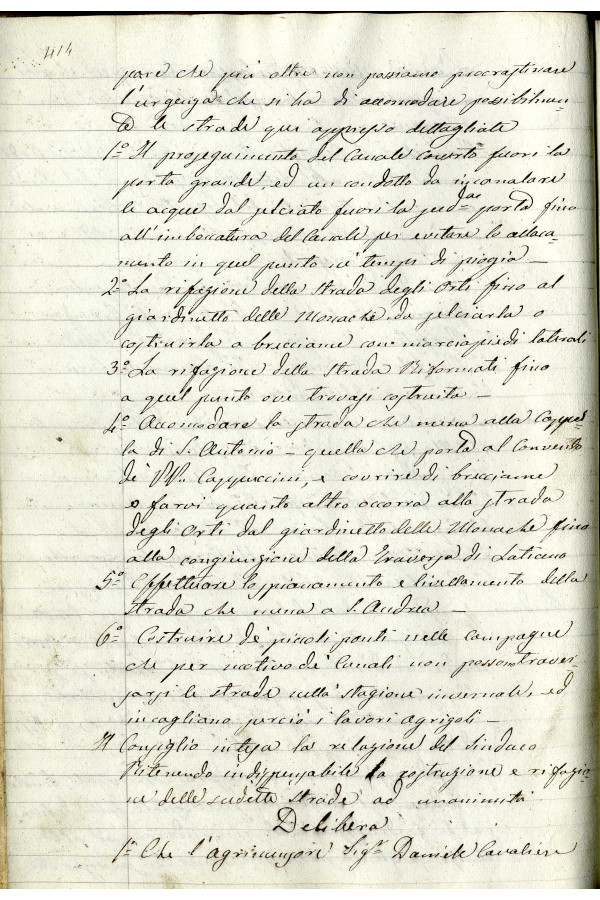 414
pare che più oltre non possiamo procrastinare
l'urgenza che si ha di accomodare possibilmen-
te le strade qui appresso dettagliate
1° Il proseguimento del Canale coverto fuori la
porta grande, ed un condotto da incanalare
le acque dal selciato fuori la sud.ta porta fino
all'imboccatura del Canale per evitare lo allaca-
mento in quel punto ne' tempi di pioggia —
2° La rifazione della strada degli Orti fino al
giardinetto delle Monache da selciarla o
costruirla a brecciame con marciapiedi laterali
3° La rifazione della strada Riformati fino
a quel punto ove trovasi costruita —
4° Accomodare la strada che mena alla Cappel-
la di S. Antonio — quella che porta al Convento
de' PP. Cappuccini, e covrire di brecciame
e farvi quanto altro occorra alla strada
degli Orti dal giardinetto delle Monache fino
alla congiunzione della Traversa di Latiano
5° Effettuare lo spianamento e livellamento della
strada che mena a S. Andrea —
6° Costruire de' piccoli ponti nelle campagne
che per motivo de' Canali non possono traver-
sarsi le strade nella stagione invernale, ed
incagliano perciò i lavori agricoli —
Il Consiglio intesa la relazione del Sindaco
Ritenendo indispensabile la costruzione e rifazio-
ne delle sudette strade ad unanimità
Delibera
1° Che l'agrimensore Sig.r Daniele Cavaliere